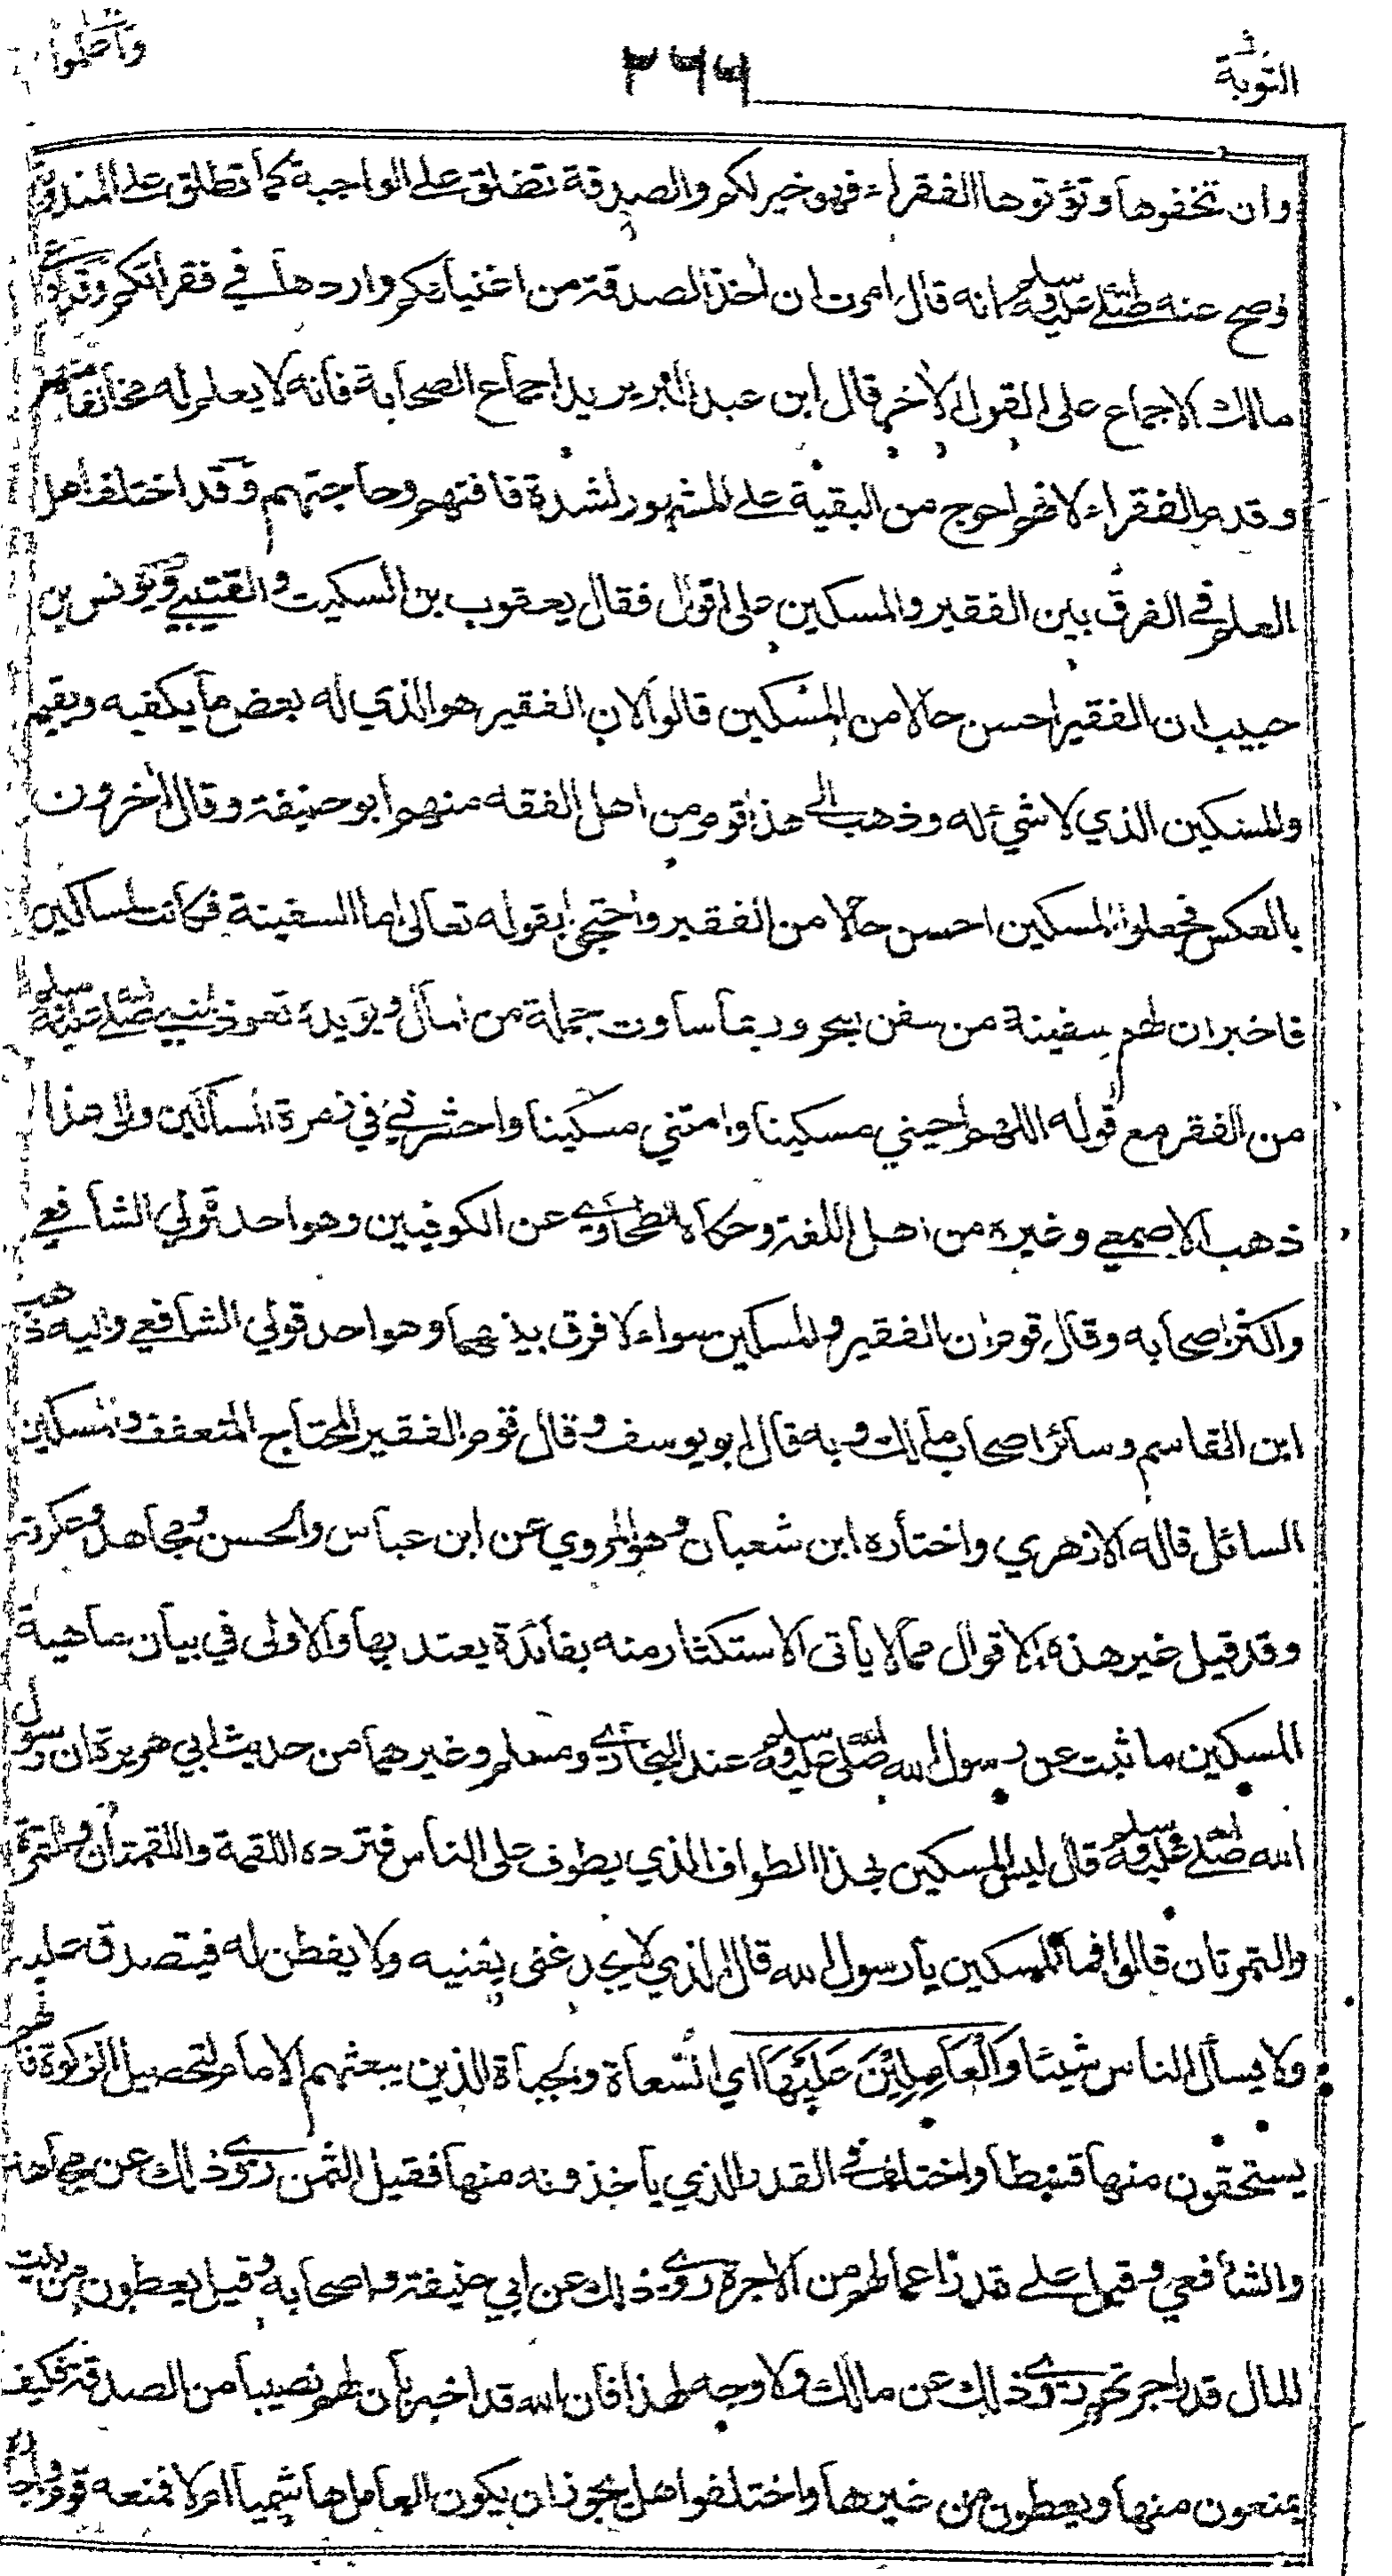 واعلموا
٢٦٦
التوبة
وان تخفوها وتؤتوها الفقراء فهو خير لكم والصدقة تطلق على الواجبة كما تطلق على المندوبة
وصح عنه صلى الله عليه وسلم انه قال امرت ان اخذ الصدقة من اغنيائكم واردها في فقرائكم
مالك الاجماع على القول الاخر قال ابن عبد البر يريد اجماع الصحابة فانه لا يعلم له مخالفا منهم
وقدم الفقراء لانهم احوج من البقية على المشهور لشدة فاقتهم وحاجتهم وقد اختلف اهل
العلم في الفرق بين الفقير والمسكين على اقوال فقال يعقوب بن السكيت والقتيبي ويونس بن
حبيب ان الفقير احسن حالا من المسكين قالوا لان الفقير هو الذي له بعض ما يكفيه ويقيمه
والمسكين الذي لا شيء له وذهب الى هذا قوم من اهل الفقه منهم ابو حنيفة وقال اخرون
بالعكس فجعلوا المسكين احسن حالا من الفقير واحتجوا بقوله تعالى اما السفينة فكانت لمساكين
فاخبر ان لهم سفينة من سفن البحر وربما ساوت جملة من المال ويؤيده تعوذ النبي صلى الله عليه وسلم
من الفقر مع قوله اللهم احيني مسكينا وامتني مسكينا واحشرني في زمرة المساكين والى هذا
ذهب الاصمعي وغيره من اهل اللغة وحكاه الطحاوي عن الكوفيين وهو احد قولي الشافعي
واكثر اصحابه وقال قوم ان الفقير والمسكين سواء لا فرق بينهما وهو احد قولي الشافعي واليه ذهب
ابن القاسم وسائر اصحاب مالك وبه قال ابو يوسف وقال قوم الفقير المحتاج المتعفف والمسكين
السائل قاله الازهري واختاره ابن شعبان وهو المروي عن ابن عباس والحسن ومجاهد وعكرمة
وقد قيل غير هذه الاقوال مما لا يأتى الاستكثار منه بفائدة يعتد بها والاولى في بيان ماهية
المسكين ما ثبت عن رسول الله صلى الله عليه وسلم عند البخاري ومسلم وغيرهما من حديث ابي هريرة ان رسول
الله صلى الله عليه وسلم قال ليس المسكين بهذا الطواف الذي يطوف على الناس فترده اللقمة واللقمتان والتمرة
والتمرتان قالوا فما المسكين يا رسول الله قال الذي لا يجد غنى يغنيه ولا يفطن له فيتصدق عليه
ولا يسأل الناس شيئا وَالْعَامِلِيْنَ عَلَيْهَا اي السعاة والجباة الذين يبعثهم الامام لتحصيل الزكوة فانهم
يستحقون منها قسطا واختلف في القدر الذي ياخذونه منها فقيل الثمن روي ذلك عن مجاهد
والشافعي وقيل على قدر اعمالهم من الاجرة روي ذلك عن ابي حنيفة واصحابه وقيل يعطون من بيت
المال قدر اجرتهم روي ذلك عن مالك ولا وجه لهذا فان الله قد اخبر بأن لهم نصيبا من الصدقة فكيف
يمنعون منها ويعطون من غيرها واختلفوا هل يجوز ان يكون العامل هاشميا ام لا فمنعه قوم